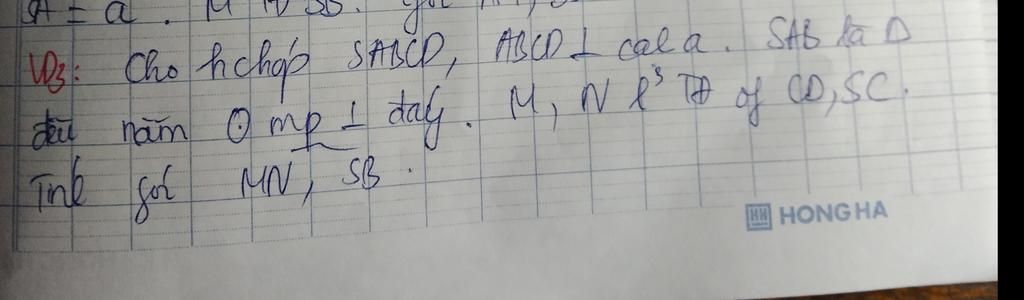 SA = a . M N SB.
VD3: Cho hchóp SABCD, ABCD ⊥ cạl a. SAB là Δ
đều nằm mp ⊥ đáy. M, N TĐ of CD, SC.
Tnh góc MN, SB.
HH HONG HA